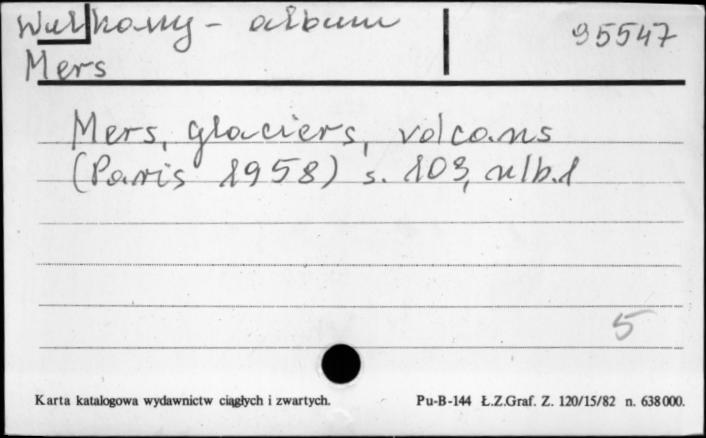 Wulkany - album 95547
Mers
Mers, glaciers, volcans
(Paris 1958) s. 103, nlb. 1
5
Karta katalogowa wydawnictw ciągłych i zwartych. Pu-B-144 Ł.Z.Graf. Z. 120/15/82 n. 638 000.